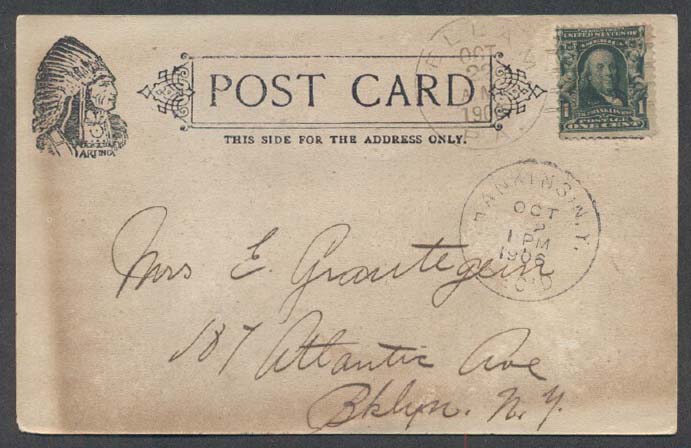 POST CARD
THIS SIDE FOR THE ADDRESS ONLY.
UNITED STATES OF AMERICA
FRANKLIN
POSTAGE
1 ONE CENT 1
OCT
1906
PA
HANKINS, N.Y.
OCT
1 PM
1906
REC'D
Mrs E.
187 Atlantic Ave
Bklyn. N.Y.